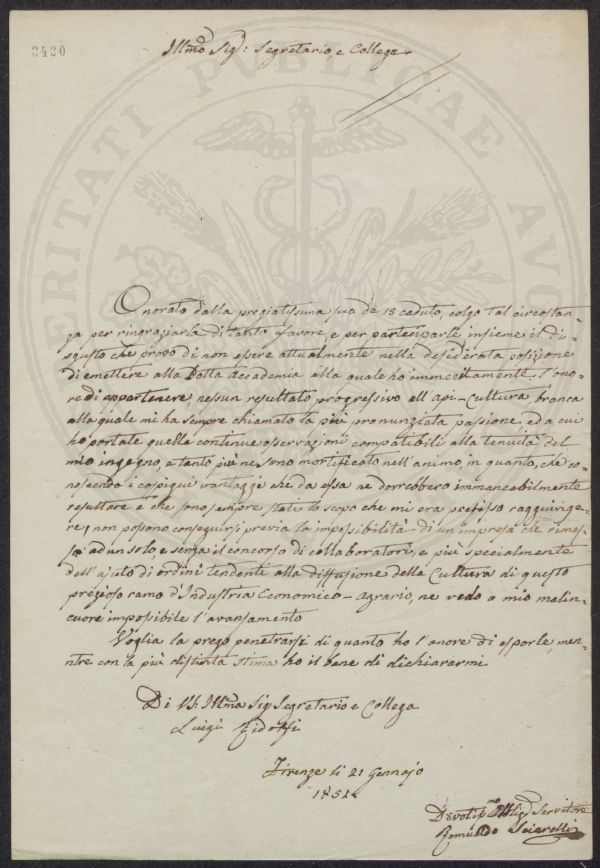 2420
Illmo Sig: Segretario e Collega
VERITATI PUBLICAE AVG
Onorato dalla pregiatissima sua de 18 caduto, colgo tal circostan-
za per ringraziarla di tanto favore, e per partecipale insieme il di-
sgusto che provo di non essere attualmente nella desiderata posizione
di emettere alla Dotta Accademia alla quale ho immeritamente l'ono-
re di appartenere, nessun resultato progressivo all'api-Cultura, branca
alla quale mi ha sempre chiamato la più pronunziata passione, ed a cui
ho portate quelle continue osservazioni compatibili alla tenuità del
mio ingegno, e tanto più ne sono mortificato nell'animo, in quanto, che co-
noscendo i cospiqui vantaggi che da essa ne dovrebbero immancabilmente
resultare e che sono sempre stati lo scopo che mi era prefisso raggiunge-
re, non possono conseguirsi previa la impossibilità di un'impresa che
ad un solo, e senza il concorso di collaboratori, e più specialmente
dell'ajuto di ordini tendenti alla diffusione della Cultura di questo
prezioso ramo d'Industria Economico-Agrario, ne vedo a mio malin-
cuore impossibile l'avanzamento
Voglia la prego penetrarsi di quanto ho l'onore di esporle, men-
tre con la più distinta stima ho il bene di dichiararmi
Di VS. Illma Sig. Segretario e Collega
Luigi Ridolfi
Firenze li 21 Gennajo
1852
Devotiss.mo Obblig. Servitore
Romualdo Sciarelli